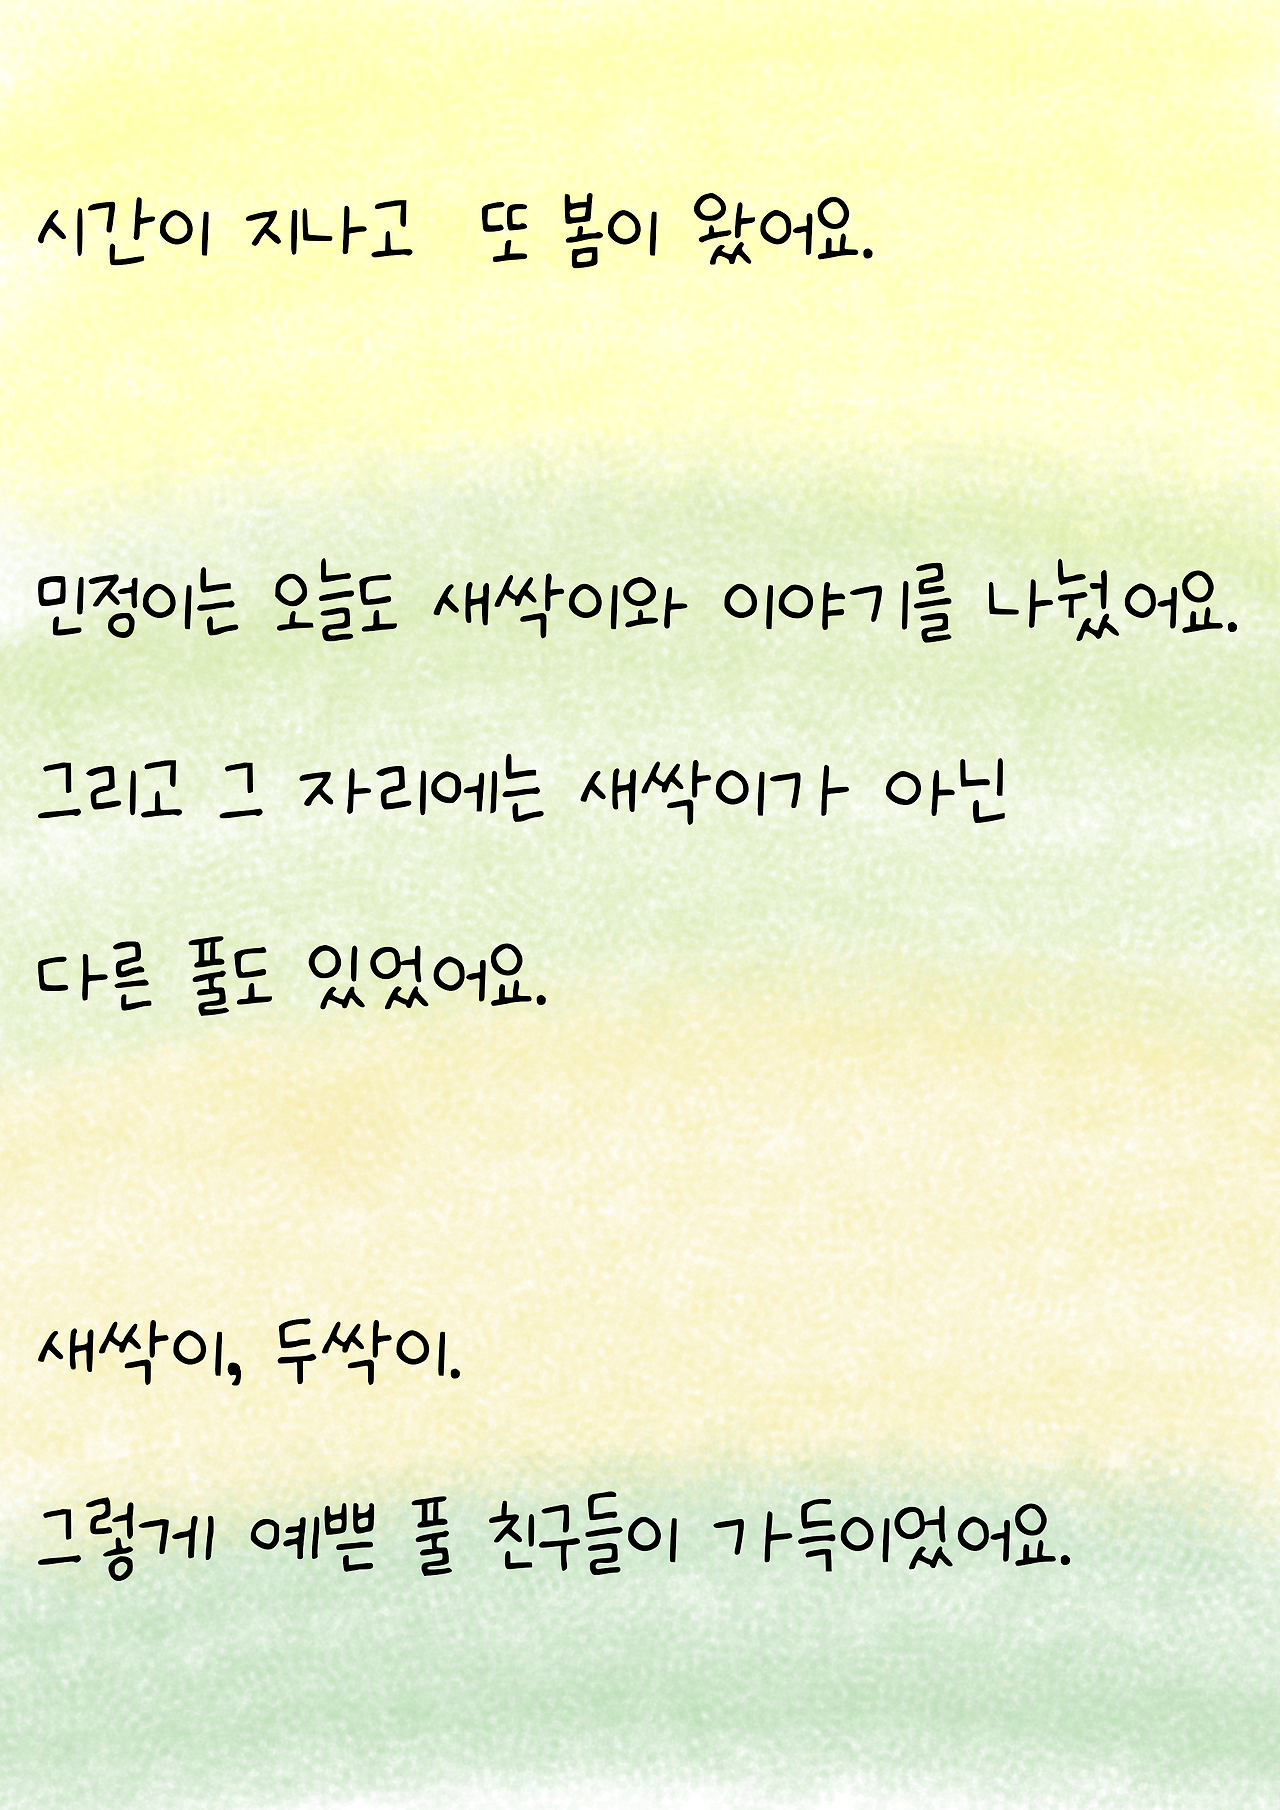 시간이 지나고 또 봄이 왔어요.
민정이는 오늘도 새싹이와 이야기를 나눴어요.
그리고 그 자리에는 새싹이가 아닌
다른 풀도 있었어요.
새싹이, 두싹이.
그렇게 예쁜 풀 친구들이 가득이었어요.